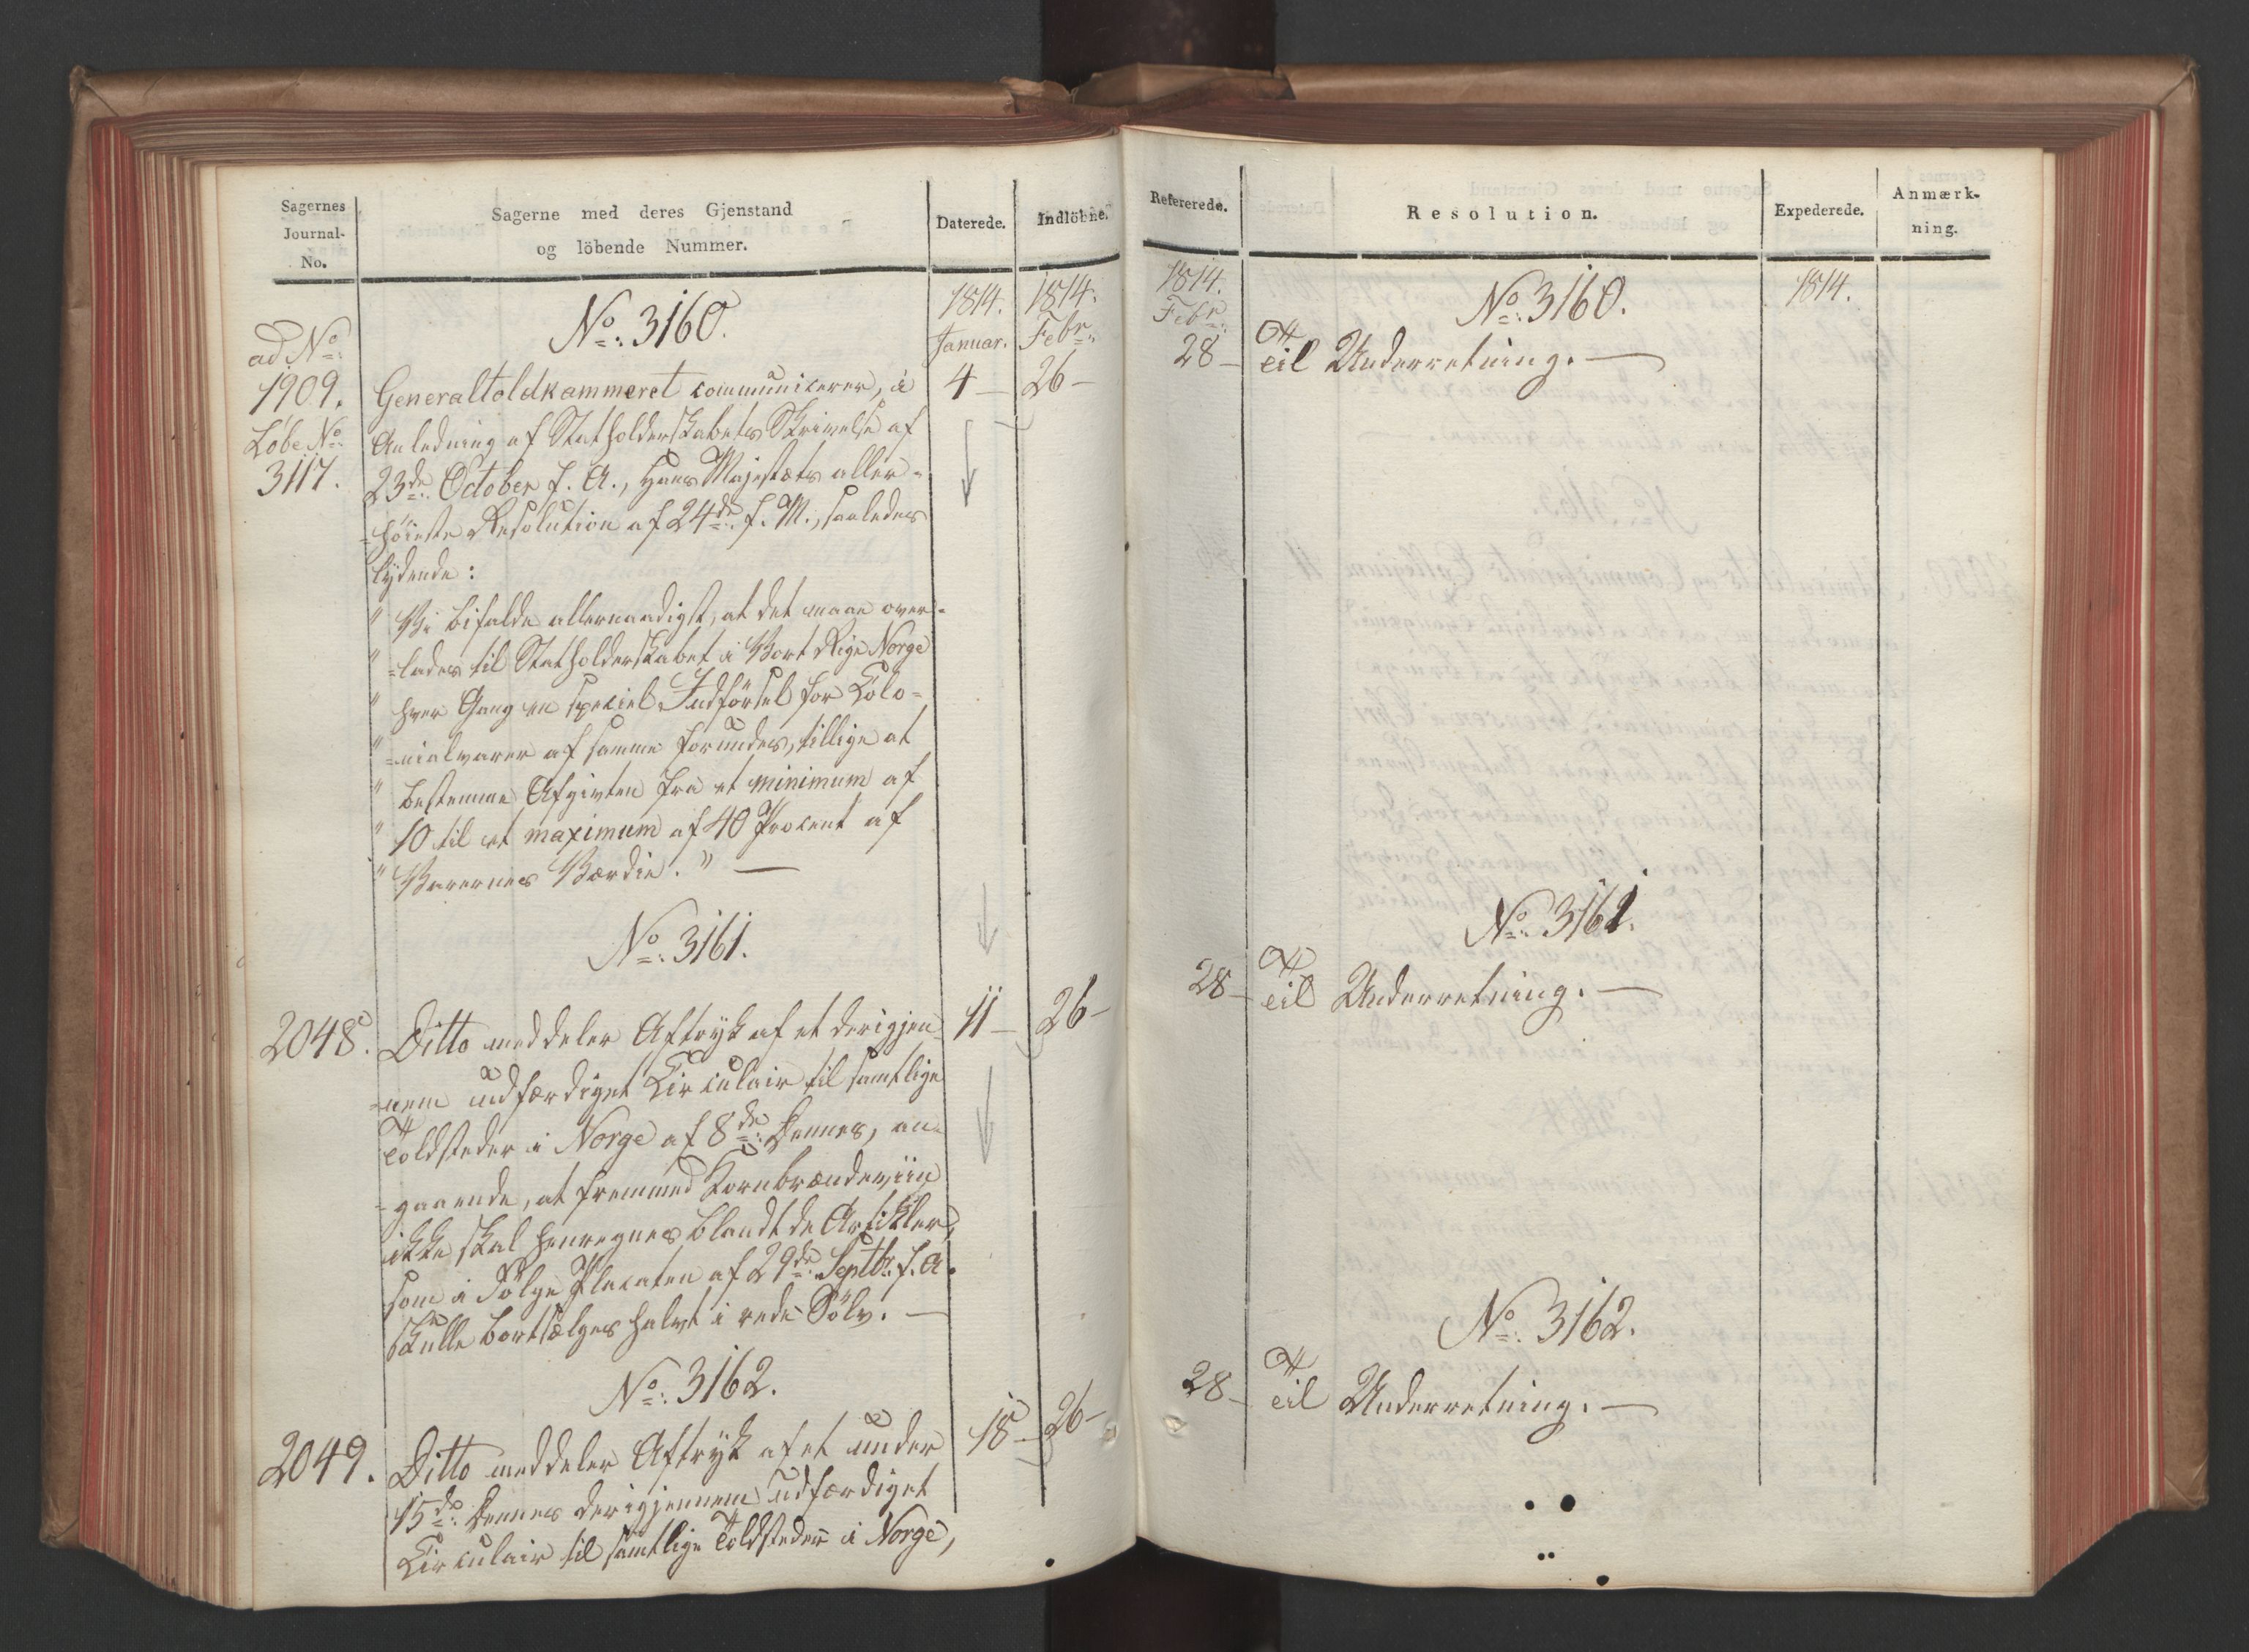 Sagernes
Journal-
No.
Sagerne med deres Gjenstand
og löbende Nummer.
Daterede.
Indlöbne.
1814.
Januar.
1814.
Febr.
ad No:
1909.
Löbe No:
3117.
No: 3160.
Generaltoldkammeret communicerer, i
4 –
26 –
Anledning af Statholderskabets Skrivelse af
23de October f. A., Hans Majestæts aller-
-höieste Resolution af 24de f. M., saaledes
lydende:
" Vi bifalde allernaadigst, at det maae over-
" -lades til Statholderskabet i Vort Rige Norge
" hver Gang en speciel Indförsel for Colo-
" -nialvarer af samme forundes, tillige at
" bestemme Afgivten fra et minimum af
" 10 til et maximum af 40 Procent af
" Varernes Værdie." —
No: 3161.
2048.
Ditto meddeler Aftryk af et derigjen-
11 –
26 –
-nem udfærdiget Circulair til samtlige
Toldsteder i Norge af 8de Dennes, an-
-gaaende, at fremmed Kornbrændeviin
ikke skal henregnes blandt de Artikler,
som i Fölge Placaten af 29de Septbr. f. A.
skulle bortsælges halvt i rede Sölv. —
No: 3162.
2049.
Ditto meddeler Aftryk af et under
18 –
26 –
15de Dennes derigjennem udfærdiget
Circulair til samtlige Toldsteder i Norge,
Refererede.
Resolution.
Expederede.
Anmærk-
ning.
1814.
Febr.
1814.
No: 3160.
28 –
Til Underretning. —
No: 3161.
28 –
Til Underretning. —
No: 3162.
28 –
Til Underretning. —